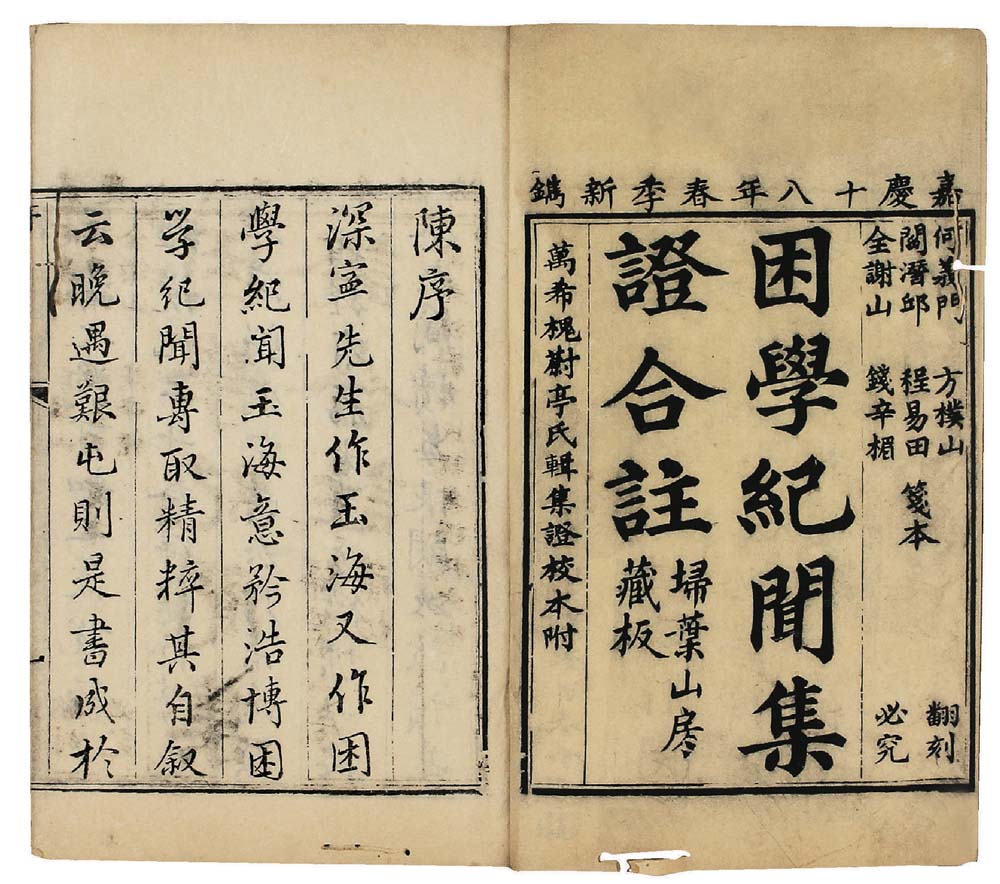 嘉慶十八年春季新鐫
何義門 方樸山
閻潛邱 程易田 箋本
全謝山 錢辛楣
翻刻
必究
困學紀聞集
證合註
埽葉山房
藏板
萬希槐蔚亭氏輯集證校本附
陳序
深寧先生作玉海又作困
學紀聞玉海意矜浩博困
學紀聞專取精粹其自叙
云晚遇艱屯則是書成於